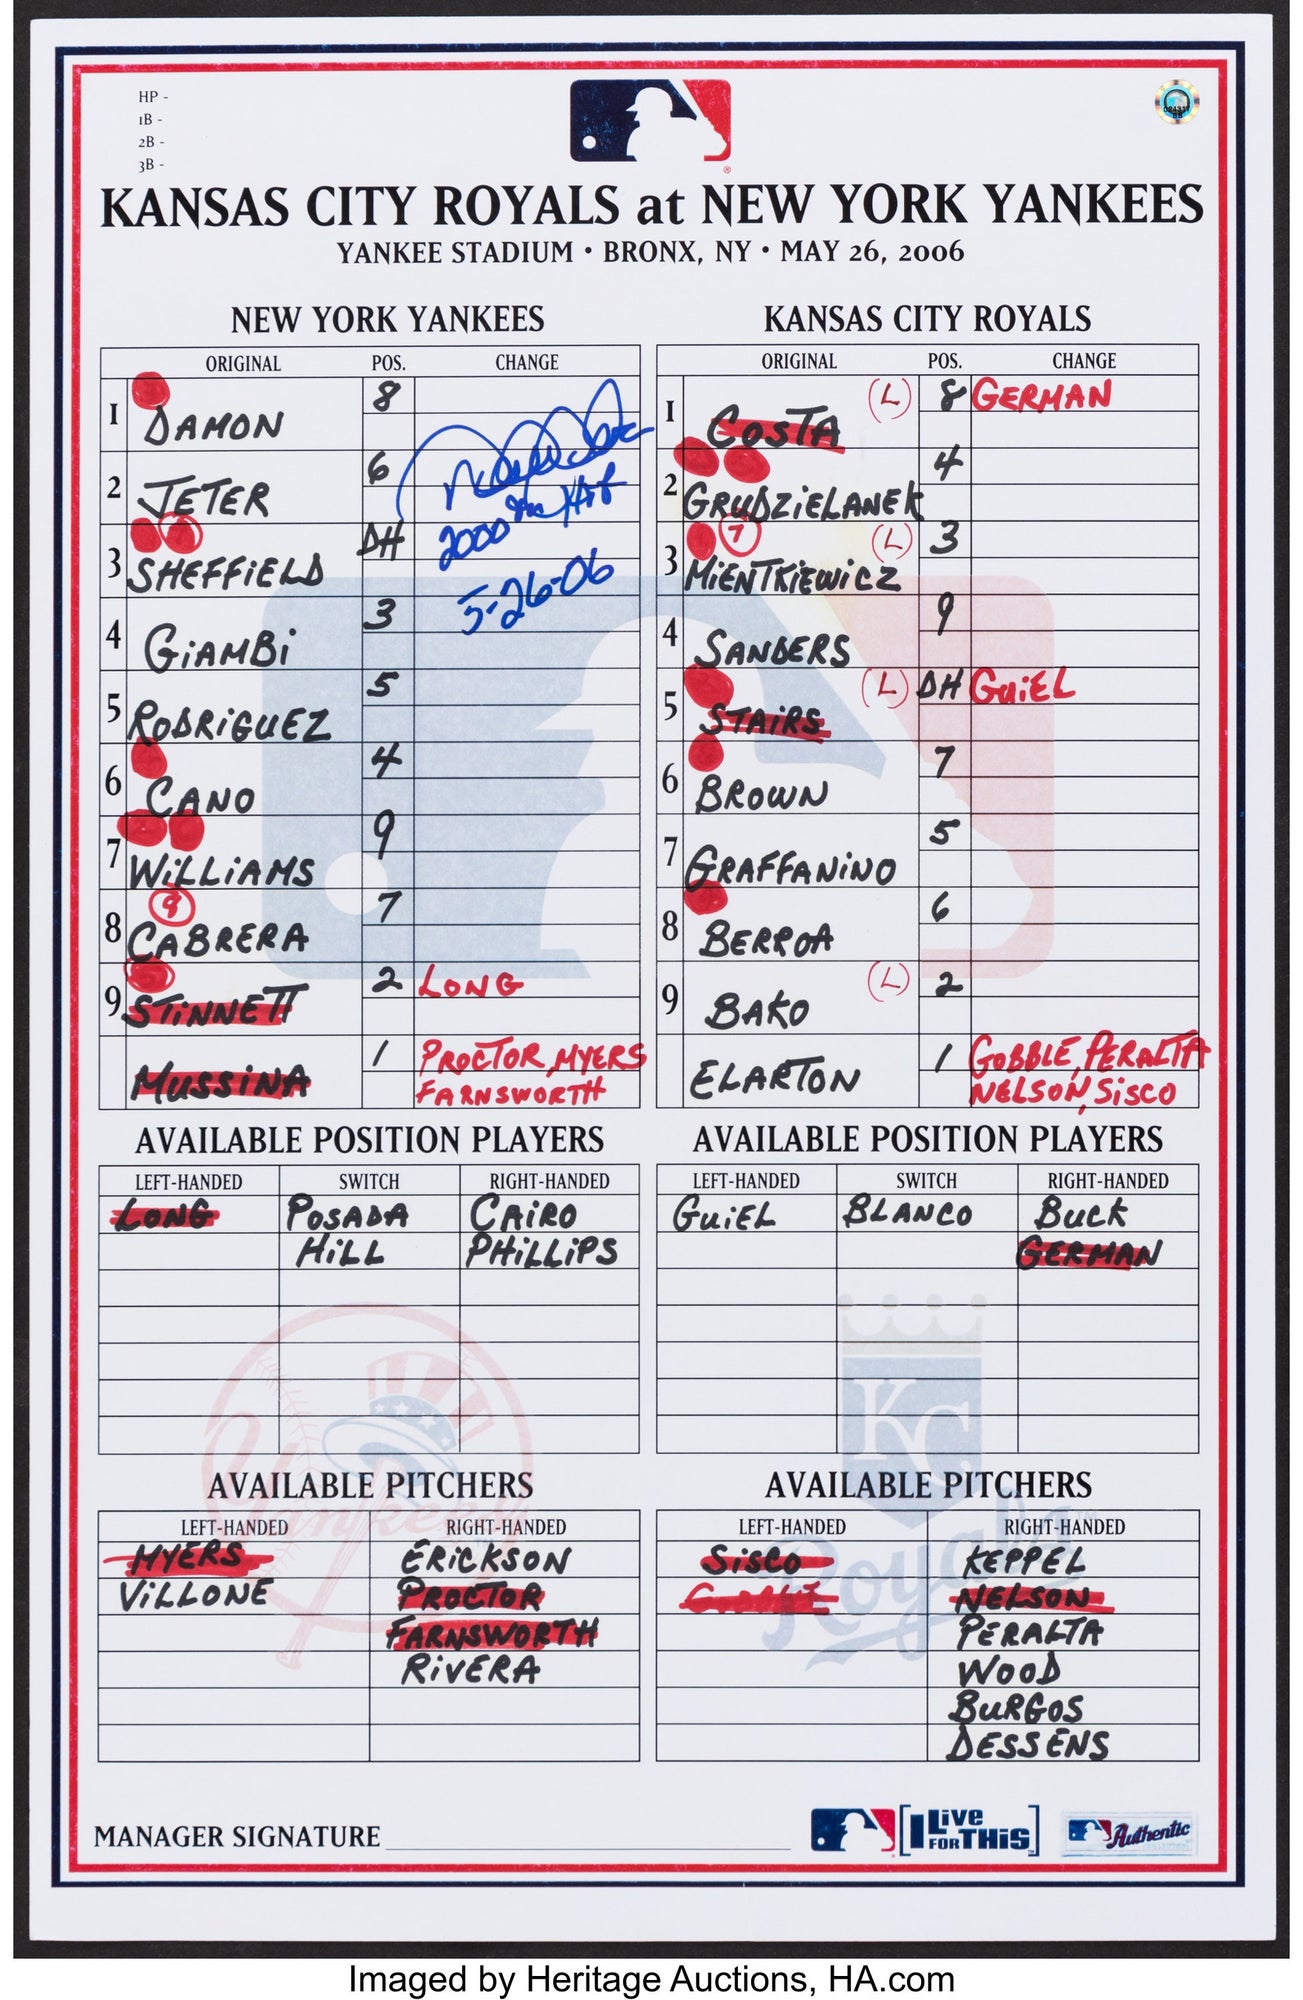 HP -
1B -
2B -
3B -
KANSAS CITY ROYALS at NEW YORK YANKEES
YANKEE STADIUM • BRONX, NY • MAY 26, 2006
NEW YORK YANKEES
ORIGINAL POS. CHANGE
1 DAMON 8
2 JETER 6
2000th Hit
5-26-06
3 SHEFFIELD DH
4 GIAMBI 3
5 RODRIGUEZ 5
6 CANO 4
7 WILLIAMS 9
8 CABRERA 7
9
9 STINNETT 2 LONG
MUSSINA 1 PROCTOR, MYERS
FARNSWORTH
KANSAS CITY ROYALS
ORIGINAL POS. CHANGE
1 COSTA (L) 8 GERMAN
2 GRUDZIELANEK 4
3 MIENTKIEWICZ 7 (L) 3
4 SANDERS 9
5 STAIRS (L) DH GUIEL
6 BROWN 7
7 GRAFFANINO 5
8 BERROA 6
9 BAKO (L) 2
ELARTON 1 GOBBLE, PERALTA
NELSON, SISCO
AVAILABLE POSITION PLAYERS
LEFT-HANDED SWITCH RIGHT-HANDED
LONG POSADA CAIRO
HILL PHILLIPS
AVAILABLE POSITION PLAYERS
LEFT-HANDED SWITCH RIGHT-HANDED
GUIEL BLANCO BUCK
GERMAN
AVAILABLE PITCHERS
LEFT-HANDED RIGHT-HANDED
MYERS ERICKSON
VILLONE PROCTOR
FARNSWORTH
RIVERA
AVAILABLE PITCHERS
LEFT-HANDED RIGHT-HANDED
SISCO KEPPEL
NELSON
PERALTA
WOOD
BURGOS
DESSENS
Yankees
KC
Royals
MANAGER SIGNATURE
I LIVE FOR THIS
Authentic
Imaged by Heritage Auctions, HA.com